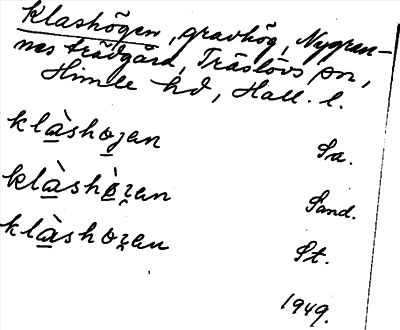 Klashögen, gravhög, Nygren-
nes trädgård, Träslövs sn,
Himle hd, Hall. l.
klàshoʒan Sa.
klàshòʒan Sand.
klàshoʒan St.
1949.